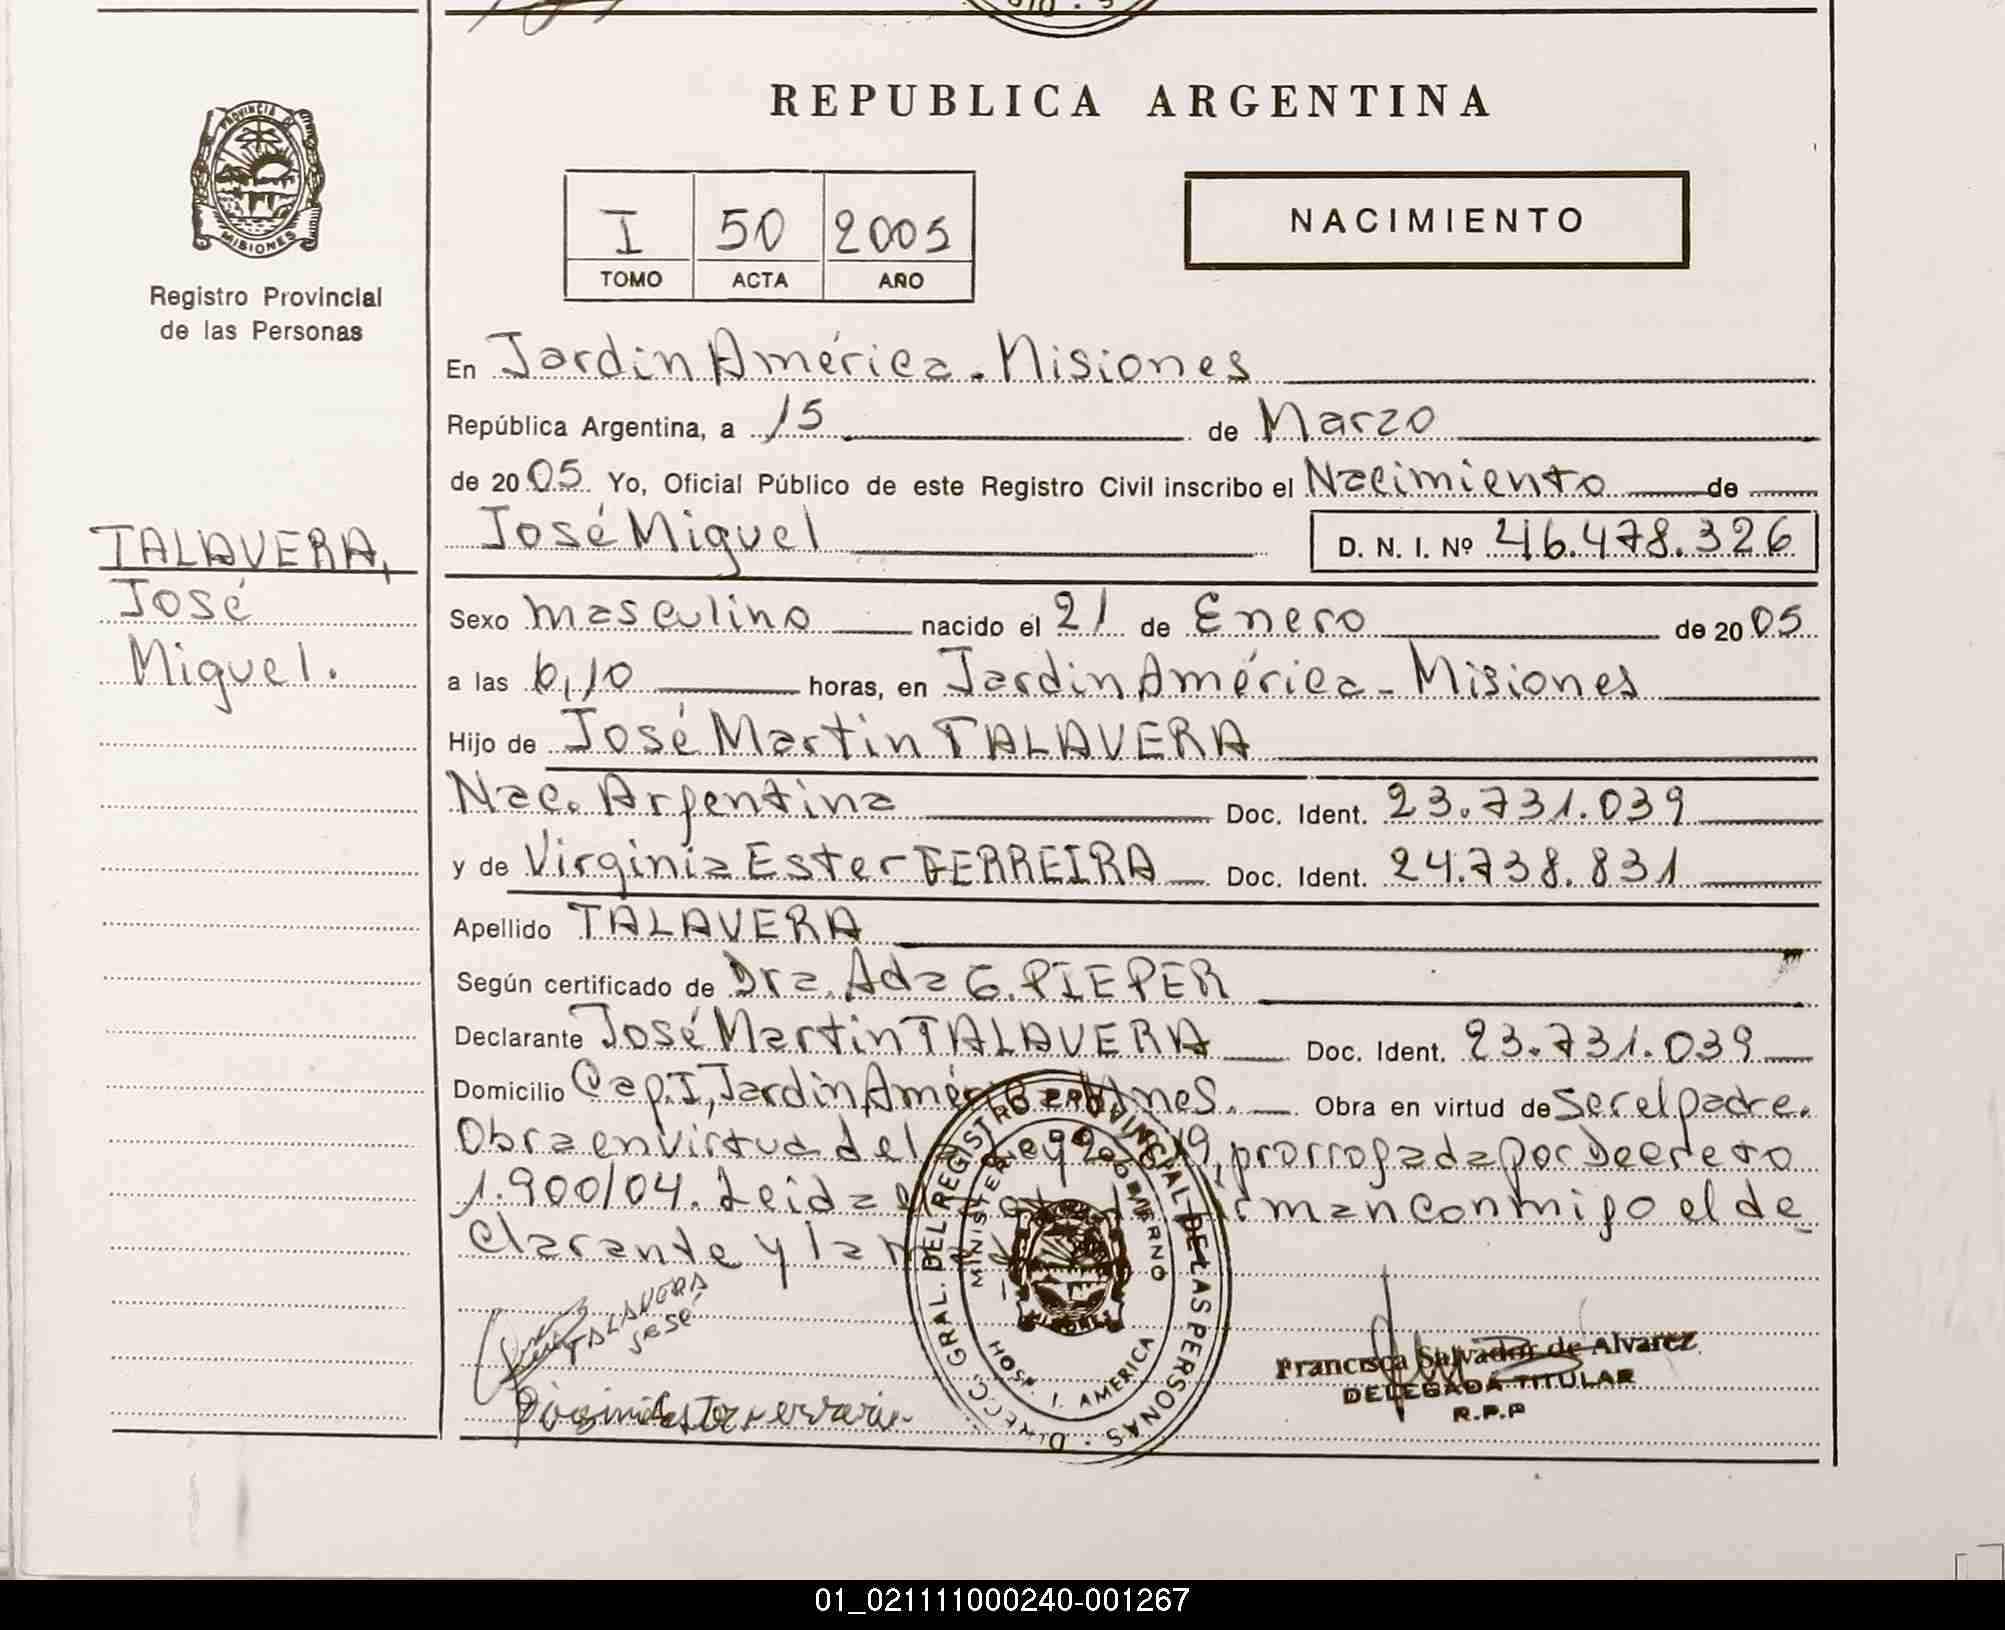 REPUBLICA ARGENTINA
PROVINCIA DE
MISIONES
Registro Provincial
de las Personas
I 50 2005
TOMO ACTA AÑO
NACIMIENTO
TALAVERA,
José
Miguel.
En Jardin América - Misiones
República Argentina, a 15 de Marzo
de 2005 Yo, Oficial Público de este Registro Civil inscribo el Nacimiento de
José Miguel D. N. I. Nº 46.478.326
Sexo masculino nacido el 21 de Enero de 2005
a las 6,10 horas, en Jardin América - Misiones
Hijo de José Martin TALAVERA
Nac. Argentina Doc. Ident. 23.731.039
y de Virginia Ester FERREIRA Doc. Ident. 24.738.831
Apellido TALAVERA
Según certificado de Dra. Ada G. PIEPER
Declarante José Martin TALAVERA Doc. Ident. 23.731.039
Domicilio Cap. I, Jardin América Mnes. Obra en virtud de ser el padre.
Obra en virtud de la Ley prorrogada por Decreto
1.900/04. Leida el firman conmigo el de
clarante y la
TALAVERA
José
DIRECC. GRAL. DEL REGISTRO PROVINCIAL DE LAS PERSONAS
MINISTERIO DE GOBIERNO
HOSP. J. AMERICA
Francisca Salvador de Alvarez
DELEGADA TITULAR
R.P.P
01_021111000240-001267